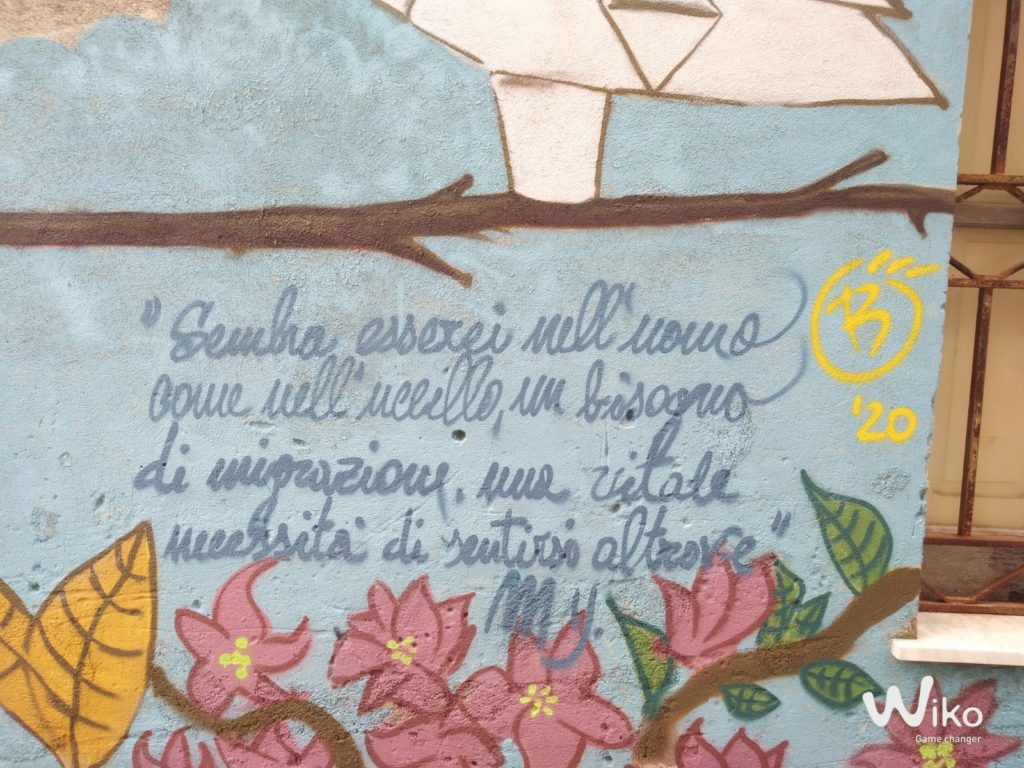 "Sembra esserci nell'uomo
come nell'uccello, un bisogno
di migrazione, una vitale
necessità di sentirsi altrove"
M.Y.
B
'20
Wiko
Game changer